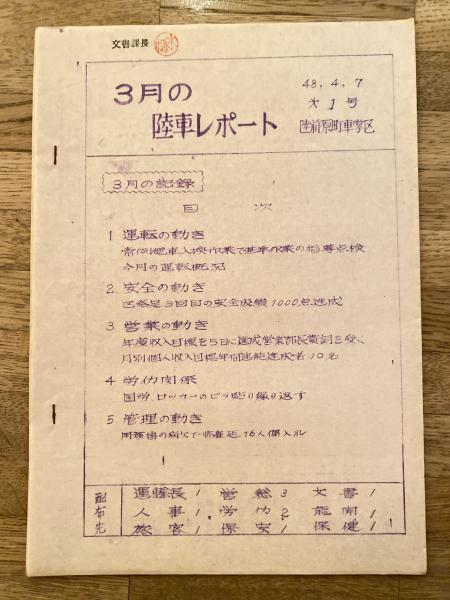 文書課長
3月の
陸車レポート
48.4.7
オ1号
陸前原町車掌区
3月の記録
目 次
1 運転の動き
今月の運転概況
2. 安全の動き
3回目の安全成績1000点達成
3 営業の動き
年度収入目標を5日に達成営業部長賞詞を受く
月別個人収入目標年間完
達成者10名
4 労仂関係
国労、ロッカーのビラ貼り繰り返す
5 管理の動き
16人
配布先
運輸長1 営総3 文書1
人事1 労仂2 能開1
旅客1 保安1 保健1